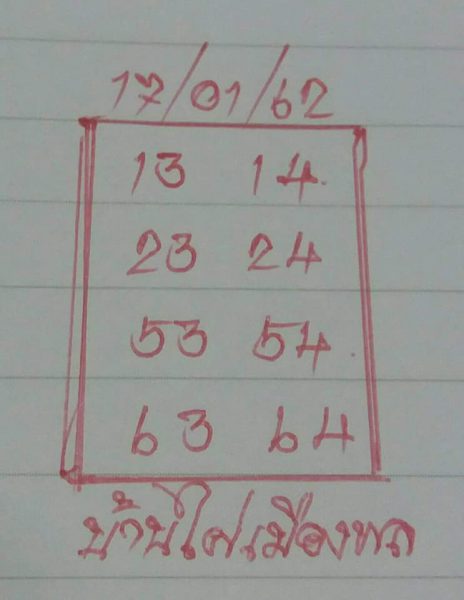 17/01/62
13 14
23 24
53 54
63 64
บ้านไผ่เมืองพล